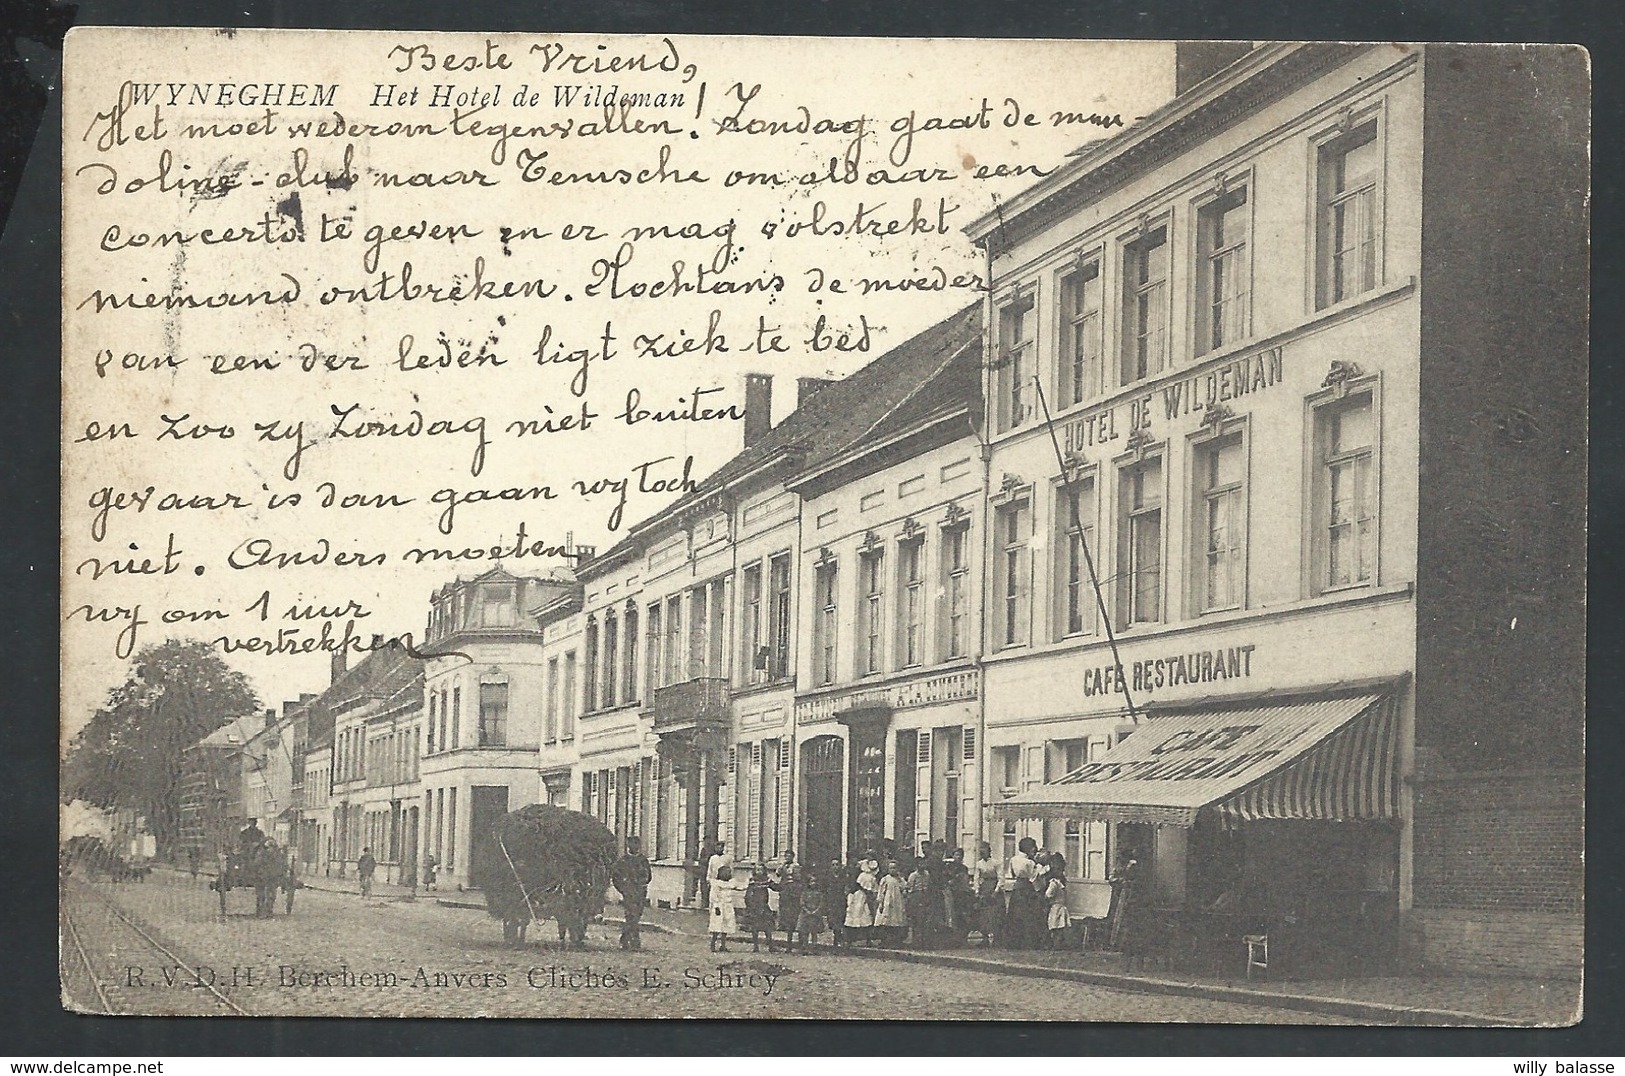 Beste Vriend,
WYNEGHEM Het Hotel de Wildeman
Het moet wederom tegenvallen! Zondag gaat de man-
doline-club naar Temsche om aldaar een
concerto te geven en er mag volstrekt
niemand ontbreken. Nochtans de moeder
van een der leden ligt ziek te bed
en zoo zy Zondag niet buiten
gevaar is dan gaan wy toch
niet. Anders moeten
wy om 1 uur
vertrekken
HOTEL DE WILDEMAN
CAFÉ RESTAURANT
CAFÉ
RESTAURANT
R.V.D.H. Berchem-Anvers Clichés E. Schrey
willy balasse